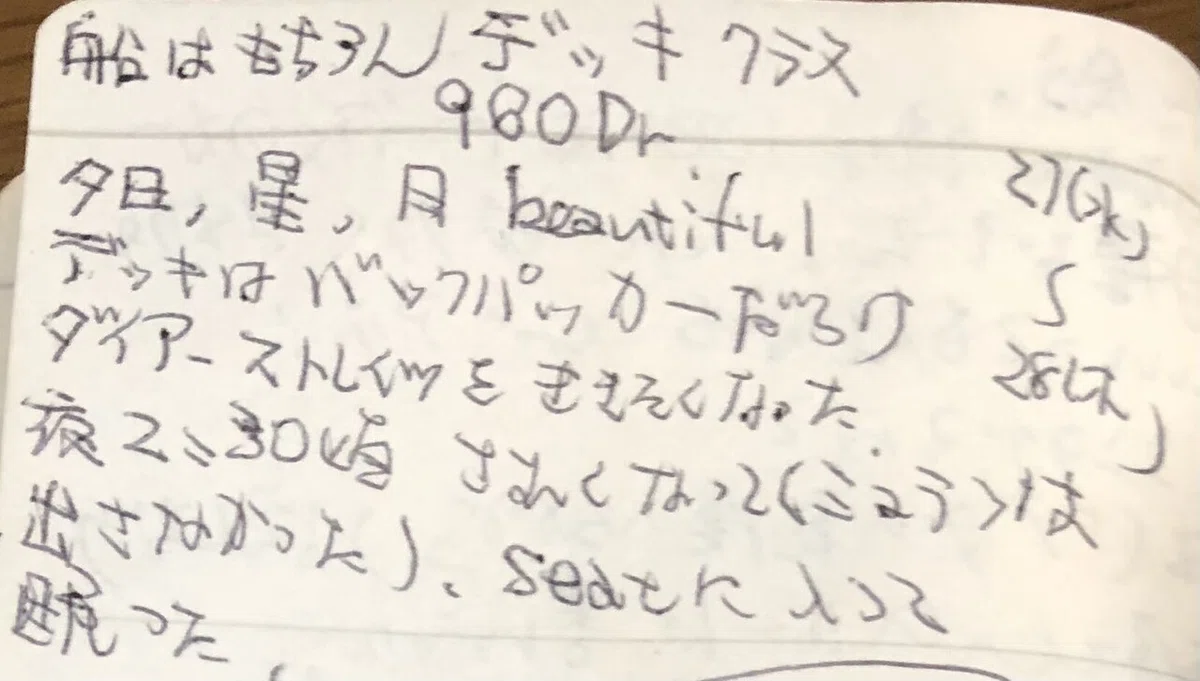 船はもちろん デッキ クラス
980Dr
夕日, 星, 月 beautiful
デッキは バックパッカーだらけ
ダイアーストレイツをききたくなった.
夜2:30頃 さむくなって(シュラフは
出さなかった)、seatに入って
眠った.